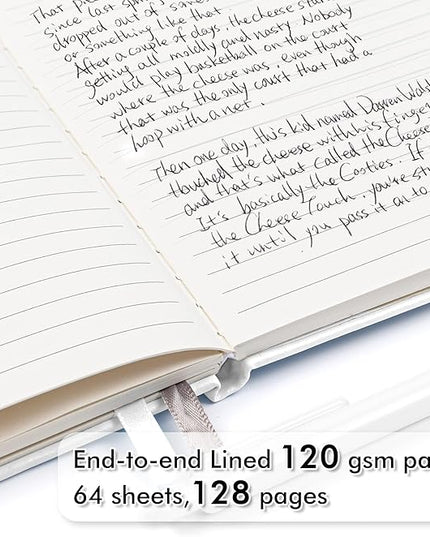 That pie
since last spri
dropped out of some
or something like that
After a couple of days, the cheese star
getting all moldy and nasty. Nobody
would play basketball on the court
where the cheese was, even though
that was the only court that had a
hoop with a net.
Then one day, this kid named Darren Wals
touched the cheese with his finger
and that's what called the Cheese
It's basically the Cooties. If
the Cheese Touch, you're stu
it until you pass it on to
End-to-end Lined 120 gsm pa
64 sheets,128 pages